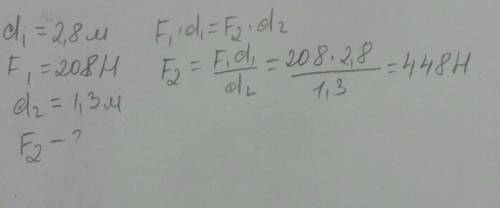 d₁ = 2,8 м
F₁ = 208 Н
d₂ = 1,3 м
F₂ - ?
F₁ · d₁ = F₂ · d₂
F₂ = F₁d₁/d₂ = 208 · 2,8/1,3 = 448 Н